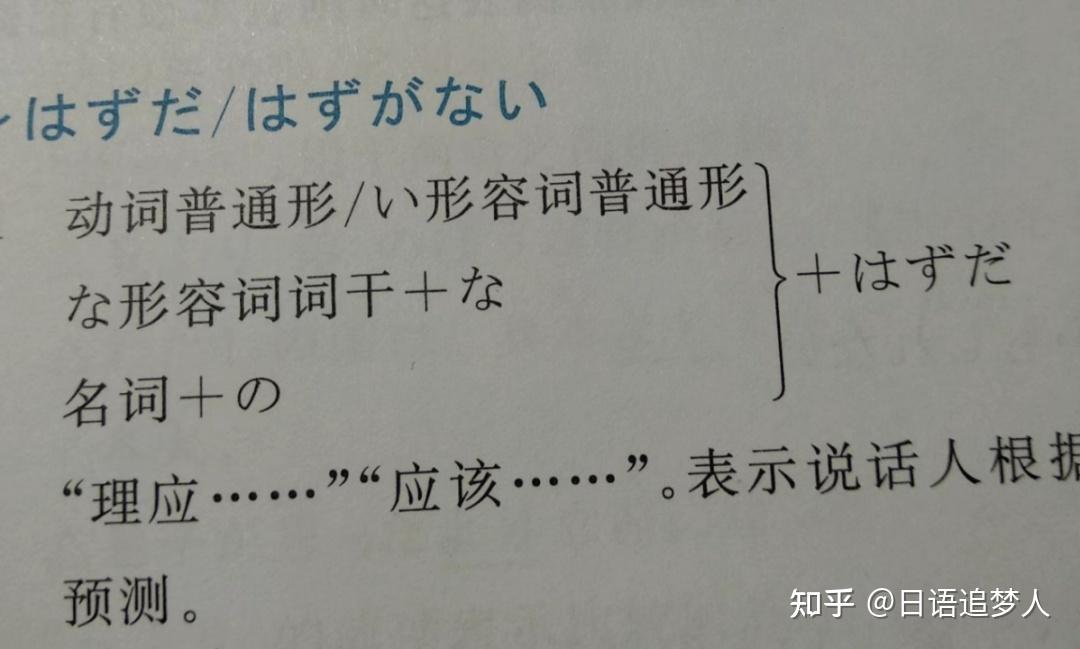 はずだ/はずがない
动词普通形/い形容词普通形
な形容词词干＋な
＋はずだ
名词＋の
“理应……”“应该……”。表示说话人根据
预测。
知乎 @日语追梦人